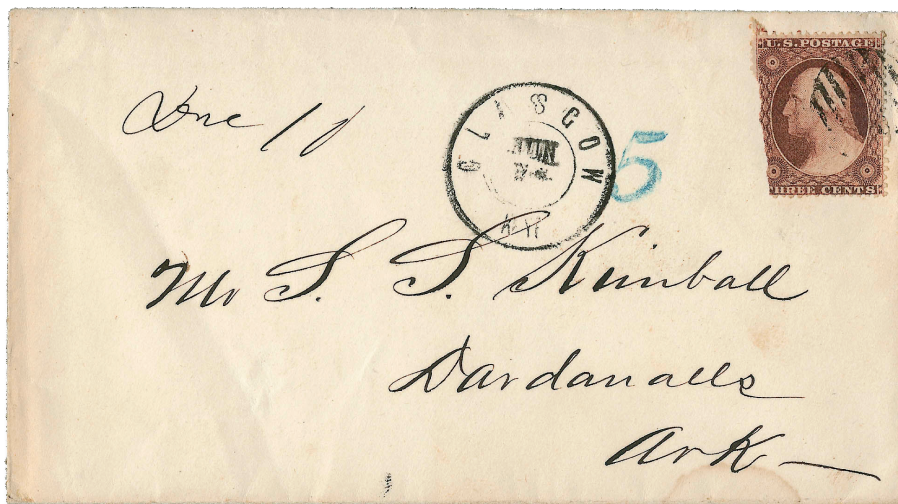 U.S. POSTAGE
THREE CENTS
Due 10
GLASGOW
JUN
KY.
5
Mr S. S. Kimball
Dardanalls
Ark